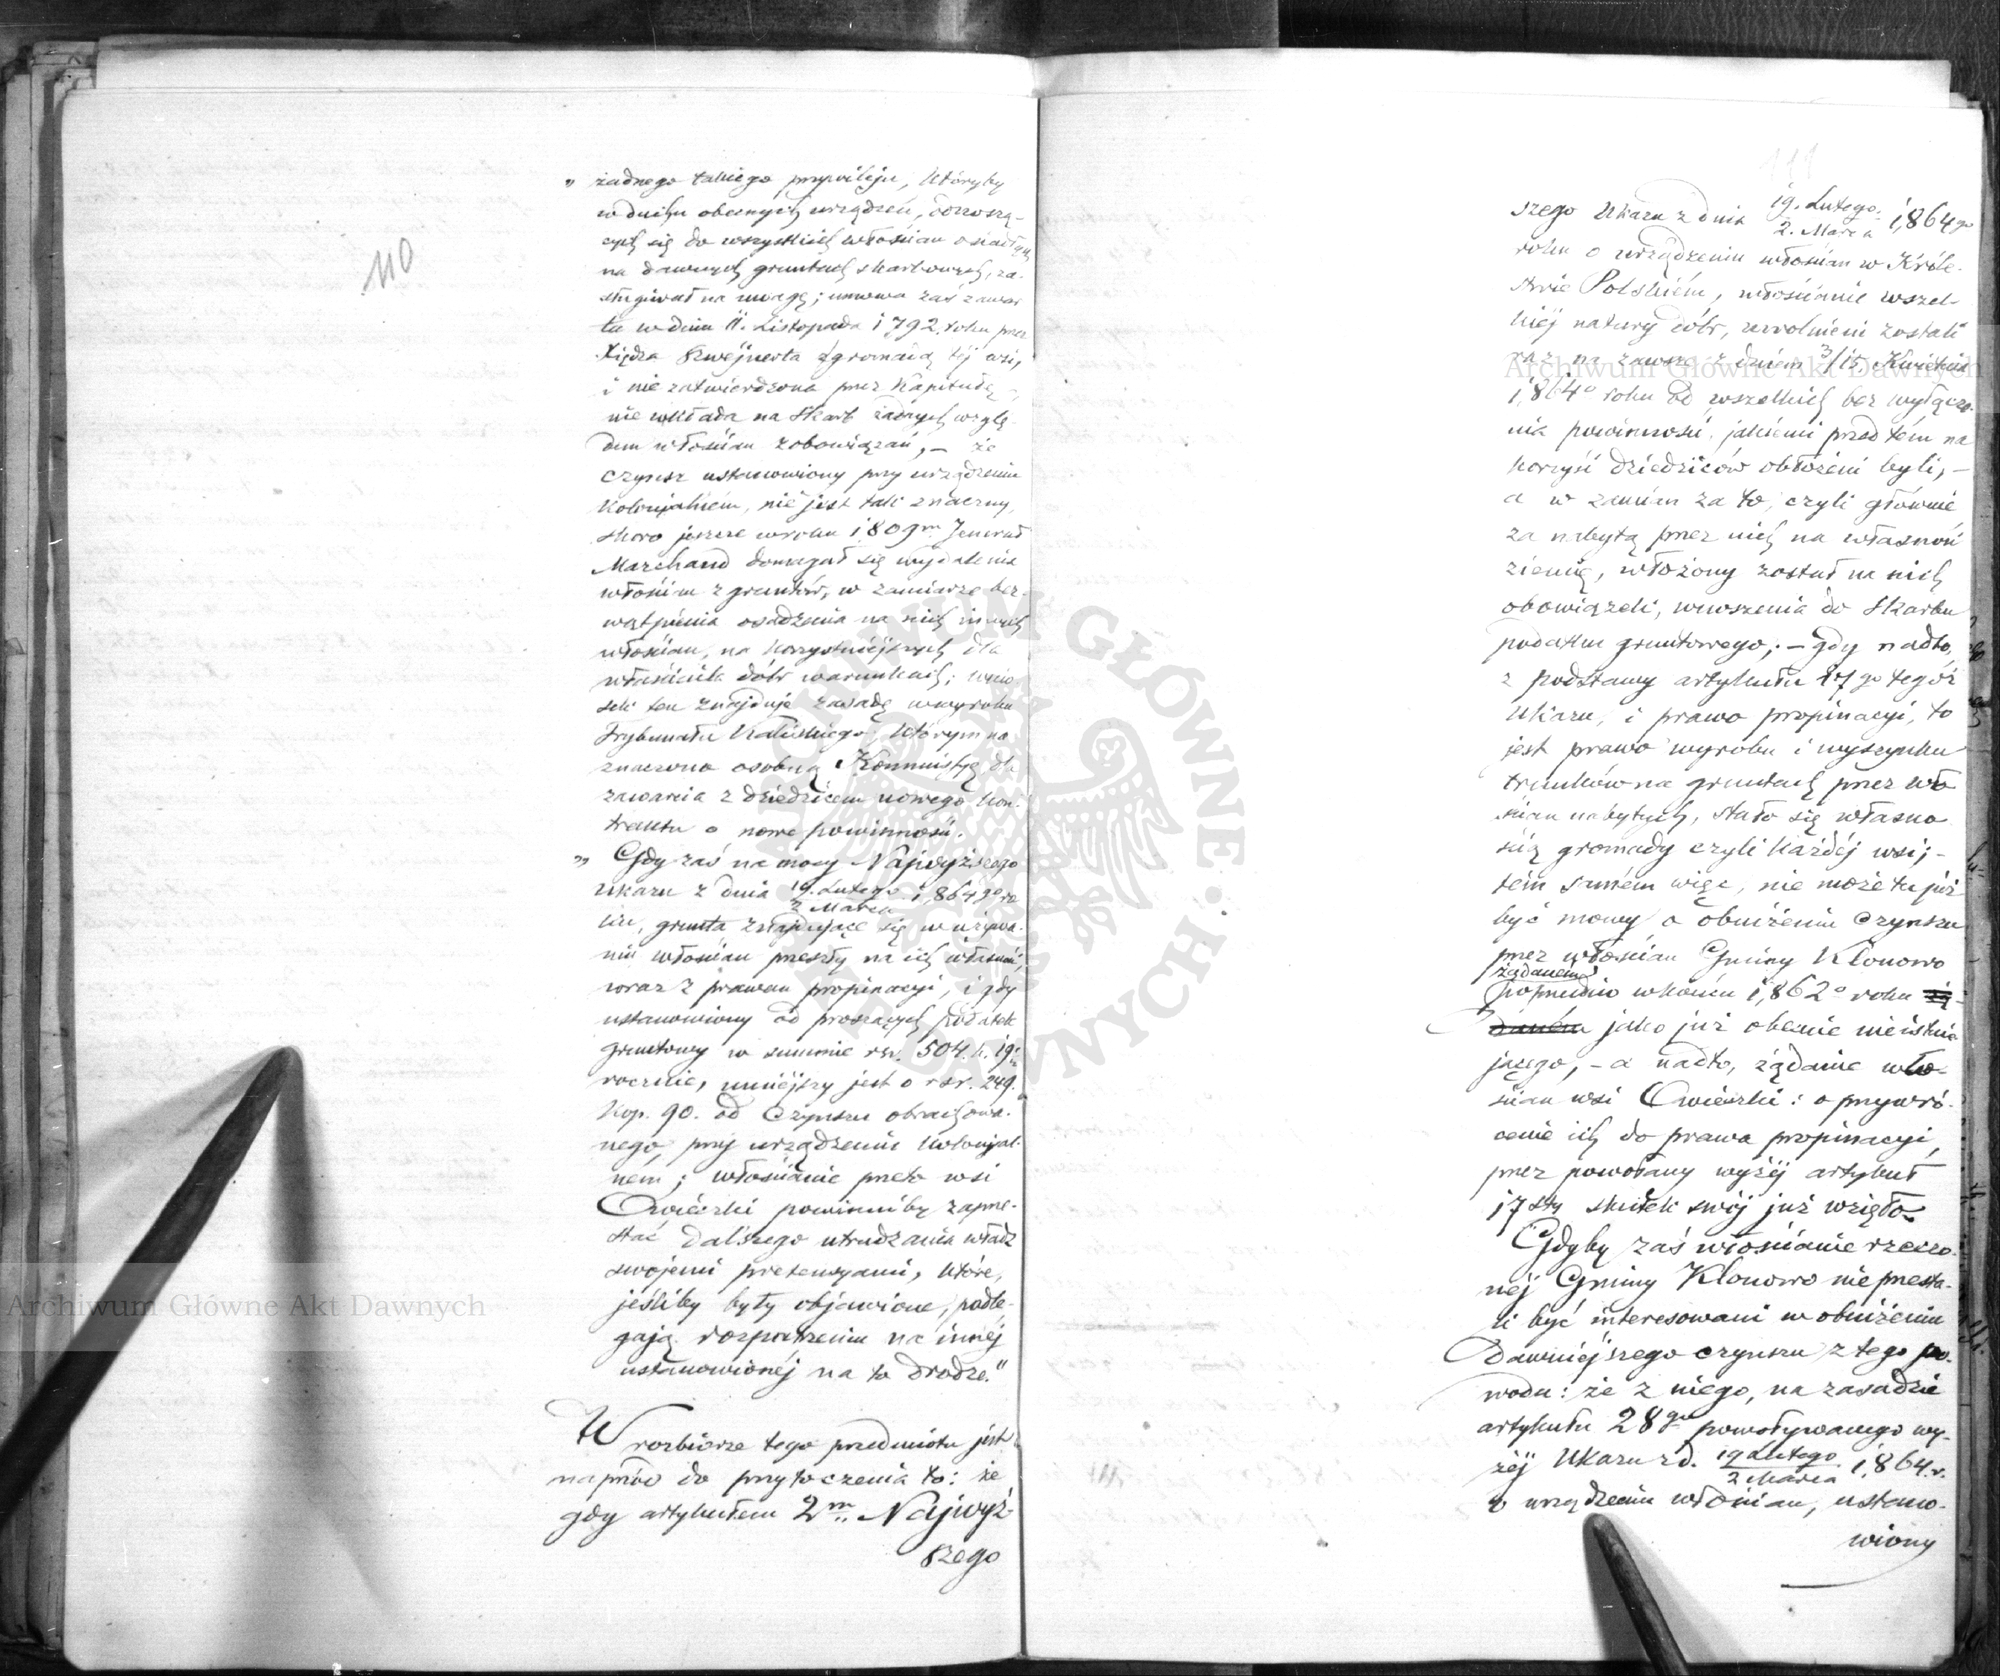 110
„ żadnego takiego przywileju, któryby
w duchu obecnych urządzeń, odnoszą-
cych się do wszystkich włościan osiadłych
na dawnych gruntach skarbowych, za-
sługiwał na uwagę; umowa zaś zawar
ta w dniu 11. Listopada 1792 roku przez
Xiędza z gromadą tej wsi,
i nie zatwierdzona przez Kapitułę
nie wkłada na Skarb żadnych wzglę-
dem włościan zobowiązań, – że
czynsz ustanowiony przy urządzeniu
Kolonijalném, nie jest tak znaczny,
skoro jeszcze w roku 1809m. Jenerał
Marchand domagał się wydalenia
włościan z gruntów, w zamiarze bez-
wątpienia osadzenia na nich innych
włościan, na korzystniejszych dla
właściciela dóbr warunkach; wnio
sek ten znajduje zasadę w wyroku
Trybunału Kaliskiego, którym na
znaczono osobną Kommissyę dla
zawarcia z dziedzicem nowego kon-
traktu o nowe powinności.
„ Gdy zaś na mocy Najwyższego
Ukazu z dnia 19. Lutego / 2 Marca 1864go ro
ku, grunta znajdujące się w używa-
niu włościan przeszły na ich własność,
wraz z prawem propinacyi, i gdy
ustanowiony od proszących podatek
gruntowy w summie rsr. 504. k. 19½
rocznie, mniejszy jest o rsr. 249.
kop. 90. od Czynszu obrachowa-
nego, przy urządzeniu kolonijal-
ném; włościanie przeto wsi
Owieczki powinniby zaprze-
stać dalszego utrudzania władz
swojemi pretensyami, które,
jeśliby były objawione, podle-
gają rozpatrzeniu na innéj
ustanowionéj na to drodze."
W rozbiorze tego przedmiotu jest
naprzód do przytoczenia to: że
gdy artykułem 2m. Najwyż-
szego
111
szego Ukazu z dnia 19. Lutego / 2. Marca 1864go
roku o urządzeniu włościan w Króle-
stwie Polskiém, włościanie wszel-
kiéj natury dóbr, uwolnieni zostali
raz na zawsze z dniem 3/15 Kwietnia
1864o roku od wszelkich bez wyłącze-
nia powinności, jakiemi przedtém na
korzyść dziedziców obłożeni byli, –
a w zamian za to, czyli głównie
za nabytą przez nich na własność
ziemię, włożony został na nich
obowiązek, wnoszenia do Skarbu
podatku gruntowego; – gdy nadto,
z podstawy artykułu 17go tegóż
Ukazu, i prawo propinacyi, to
jest prawo wyrobu i wyszynku
trunków na gruntach przez wło
ścian nabytych, stało się własno-
ścią gromady czyli każdéj wsi; –
tém samém więc, nie może tu już
być mowy o obniżeniu Czynszu
przez włościan Gminy Klonowo
żądaném
poprzednio w końcu 1862o roku żą-
daném jako już obecnie nieistnie
jącego, – a nadto, żądanie wło-
ścian wsi Owieczki: o przywró-
cenie ich do prawa propinacyi,
przez powołany wyżéj artykuł
17sty skutek swój już wzięło.
Gdyby zaś włościanie rzeczo-
néj Gminy Klonowo nie przesta-
li być interesowani w obniżeniu
dawniejszego czynszu z tego po-
wodu: że z niego, na zasadzie
artykułu 28go powoływanego wy-
żéj Ukazu z d. 19 Lutego / 2 Marca 1864.r.
o urządzeniu włościan, ustano-
wiony
Archiwum Główne Akt Dawnych
Archiwum Główne Akt Dawnych
ARCHIWUM GŁÓWNE AKT DAWNYCH